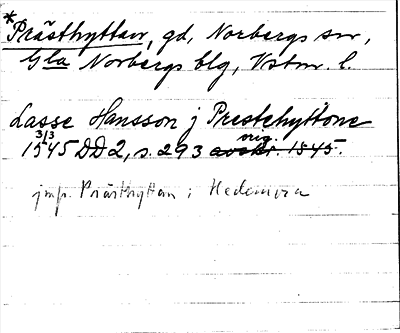 *Prästhyttan, gd, Norbergs sn,
Gla Norbergs blg, Vstm. l.
Lasse Hansson j Prestehyttone
3/3 orig.
1545 DD2, s. 293 avskr. 1545.
jmf. Prästhyttan i Hedemora